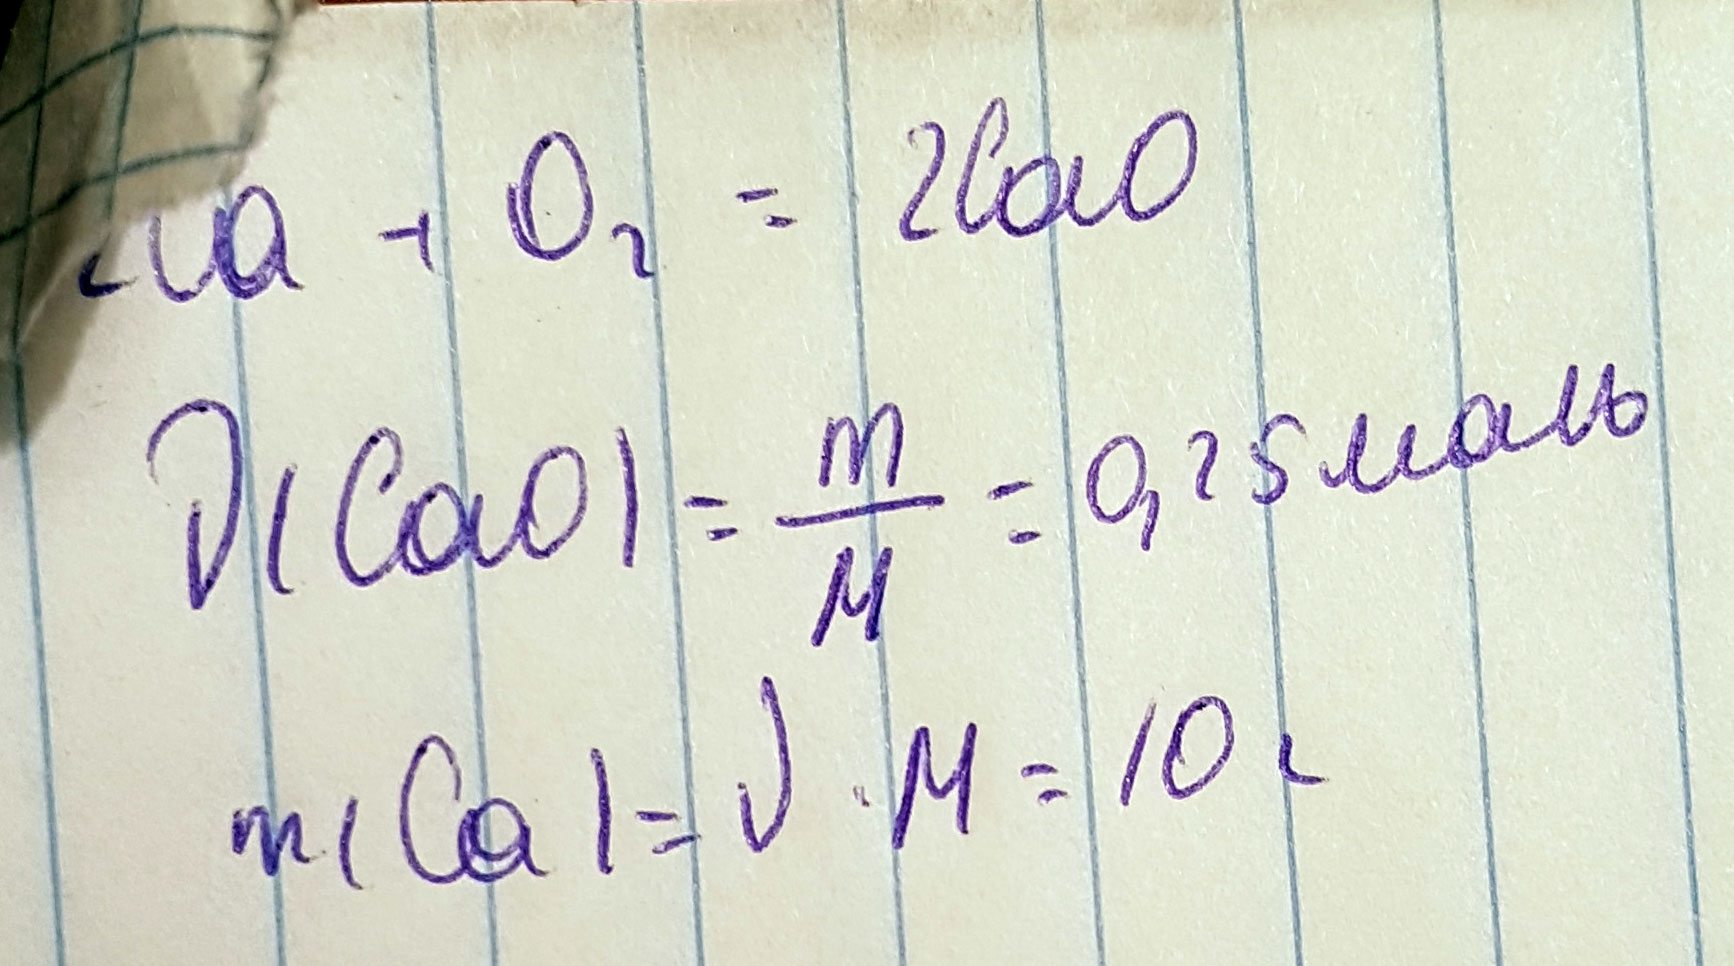 2Ca + O₂ = 2CaO
ν(CaO) = m/M = 0,25 моль
m(Ca) = ν · M = 10 г